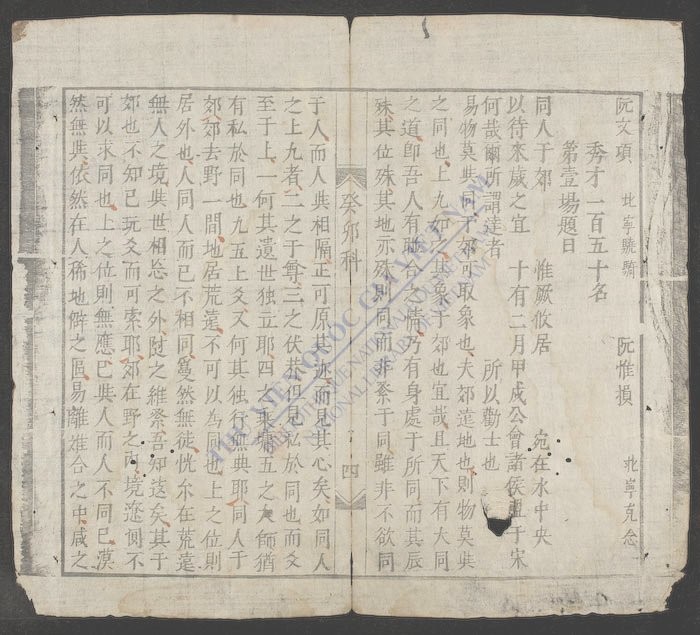 阮文項 北寧驍騎 阮惟損 北寧克念
秀才一百五十名
第壹場題目
同人于郊 惟厥攸居 宛在水中央
以待來歲之宜 十有二月甲戌公會諸侯盟于宋
何哉爾所謂達者 所以勸士也
易物莫與同于郊可取象也夫郊遠地也則物莫與
之同也上九如之其象于郊也宜哉且天下有大同
之道即吾人有聯合之情乃有身處于所同而其辰
殊其位殊其地亦殊則同而非繫于同雖非不欲同
癸卯科 四
于人而人與相隔正可原其迹而見其心矣如同人
之上九者二之于尊三之伏莽但見私於同也而爻
至于上一何其遺世獨立耶四之乘墉五之大師猶
有私於同也九五上爻又何其独行無與耶同人于
郊郊去野一間地居荒遠不可以為同也上之位則
居外也人同人而已不相同敻然無徒恍尒在荒遠
無人之境與世相忘之外賁之維繫吾知遠矣其于
郊也不知已玩爻而可索耶郊在野之内境遼側不
可以求同也上之位則無應已與人而人不同已漠
然無與依然在人稀地僻之區易離難合之中咸之
THƯ VIỆN QUỐC GIA VIỆT NAM
NATIONAL LIBRARY OF VIETNAM